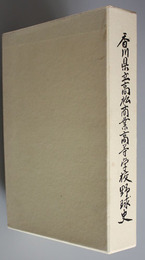 香川県立高松商業高等学校野球史